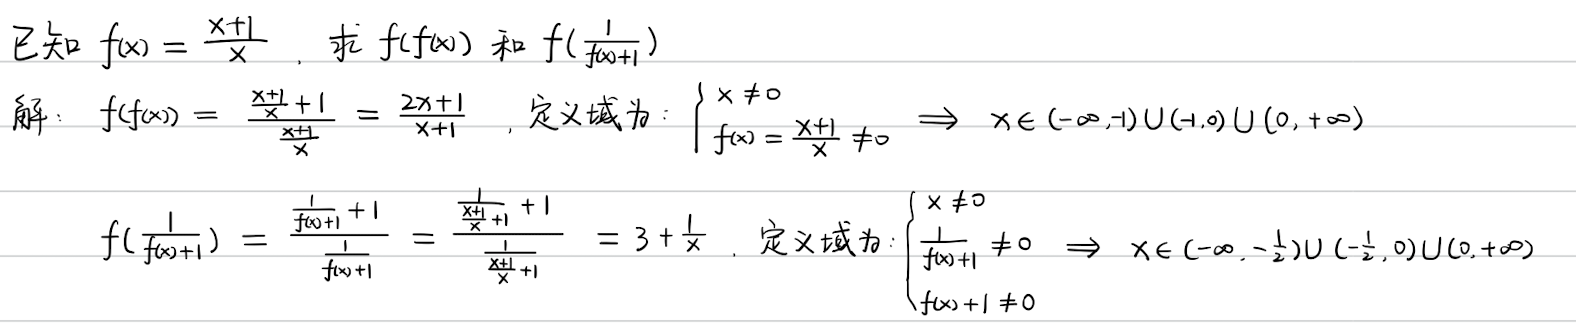 已知 f(x) = \frac{x+1}{x} . 求 f(f(x)) 和 f(\frac{1}{f(x)+1})
解: f(f(x)) = \frac{\frac{x+1}{x}+1}{\frac{x+1}{x}} = \frac{2x+1}{x+1} , 定义域为: \begin{cases} x≠0 \\ f(x) = \frac{x+1}{x} ≠0 \end{cases} ⟹ x∈(-∞,-1)∪(-1,0)∪(0,+∞)
f(\frac{1}{f(x)+1}) = \frac{\frac{1}{f(x)+1}+1}{\frac{1}{f(x)+1}} = \frac{\frac{1}{\frac{x+1}{x}+1}+1}{\frac{1}{\frac{x+1}{x}+1}} = 3+\frac{1}{x} . 定义域为: \begin{cases} x≠0 \\ \frac{1}{f(x)+1} ≠0 \\ f(x)+1≠0 \end{cases} ⟹ x∈(-∞,-\frac{1}{2})∪(-\frac{1}{2},0)∪(0,+∞)